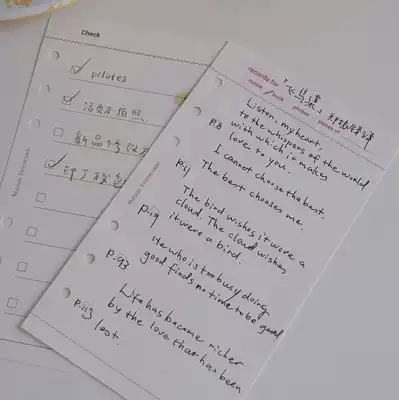 Check
pilates
活页本拍照
新品修改
印丁校色
records for 「飞鸟集」郑振铎译
movie / book phrase pieces of
Listen, my heart,
to the whispers of the world
p.8 with which it makes
love to you.
I cannot choose the best.
p.4 The best chooses me.
The bird wishes it were a
cloud. The cloud wishes
p.19 it were a bird.
He who is too busy doing
p.93 good finds no time to be good
Life has become richer
p.113 by the love that has been
lost.